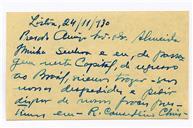 Lisboa, 24/11/930
Presado Amigo Snr. Dr. Almeida
Minha Senhora e eu, de passa-
gem nesta Capital, de regresso
ao Brasil, viemos trazer-vos
nossas despedidas e pedir
dispor de nossos fracos pres-
timos em - R.